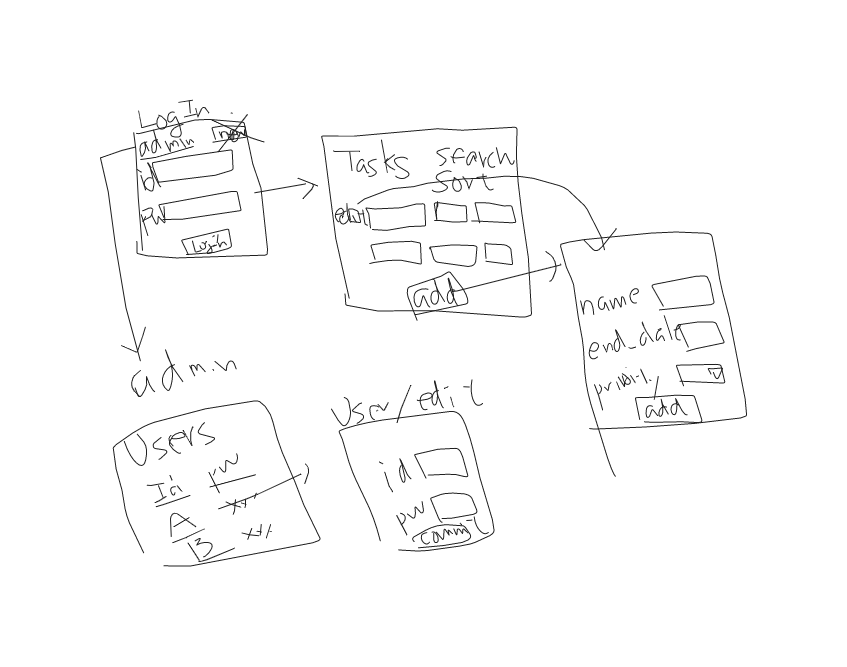 LogIn
admin
id
pw
Login
Tasks search
sort
edit
add
name
end_date
add
admin
Users
Id pw
A xx
B xxx
User/edit
id
pw
commit